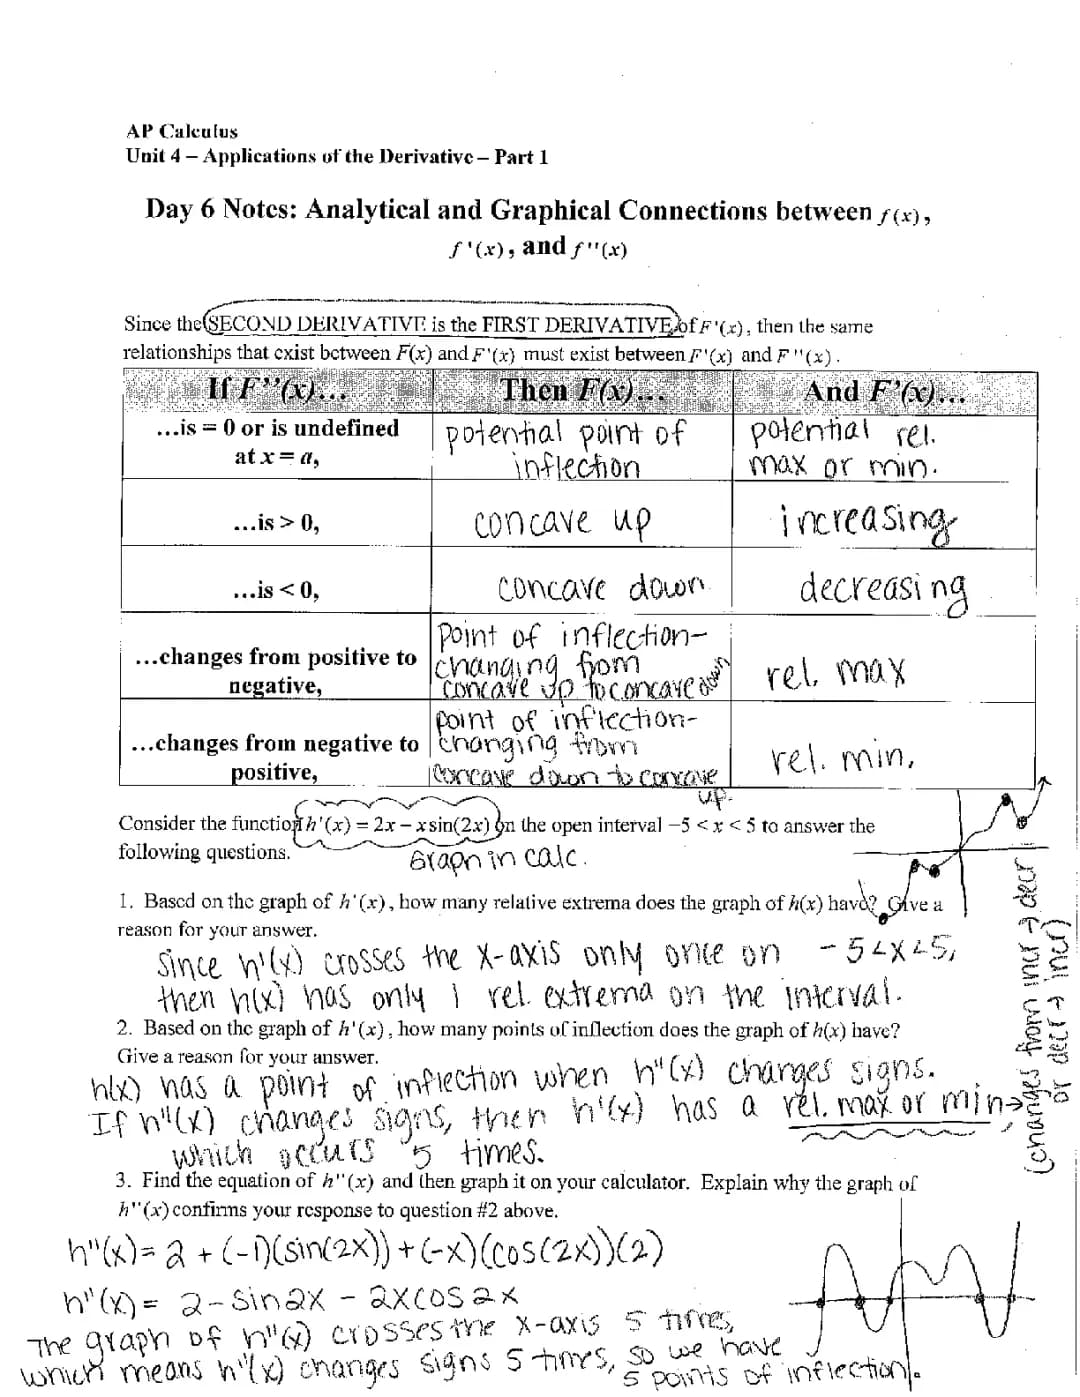 AP Calculus
Unit 4 – Applications of the Derivative – Part 1
Day 6 Notes: Analytical and Graphical Connections between f(x),
f'(x), and f''(x)
Since the SECOND DERIVATIVE is the FIRST DERIVATIVE of F'(x), then the same
relationships that exist between F(x) and F'(x) must exist between F'(x) and F''(x).
If F''(x)... Then F(x)... And F'(x)...
...is = 0 or is undefined at x = a, potential point of inflection potential rel. max or min.
...is > 0, concave up increasing
...is < 0, concave down decreasing
...changes from positive to negative, point of inflection- changing from concave up to concave down rel. max
...changes from negative to positive, point of inflection- changing from concave down to concave up. rel. min.
Consider the function h'(x) = 2x – x sin(2x) on the open interval –5 < x < 5 to answer the
following questions.
Graph in calc.
1. Based on the graph of h'(x), how many relative extrema does the graph of h(x) have? Give a
reason for your answer.
Since h'(x) crosses the x-axis only once on -5<x<5,
then h(x) has only 1 rel. extrema on the interval.
2. Based on the graph of h'(x), how many points of inflection does the graph of h(x) have?
Give a reason for your answer.
h(x) has a point of inflection when h''(x) changes signs.
If h''(x) changes signs, then h'(x) has a rel. max or min→
which occurs 5 times.
(changes from incr → decr
or decr → incr)
3. Find the equation of h''(x) and then graph it on your calculator. Explain why the graph of
h''(x) confirms your response to question #2 above.
h''(x) = 2 + (-1)(sin(2x)) + (-x)(cos(2x))(2)
h''(x) = 2 - sin2x - 2xcos2x
The graph of h''(x) crosses the x-axis 5 times,
which means h''(x) changes signs 5 times, so we have
5 points of inflection.